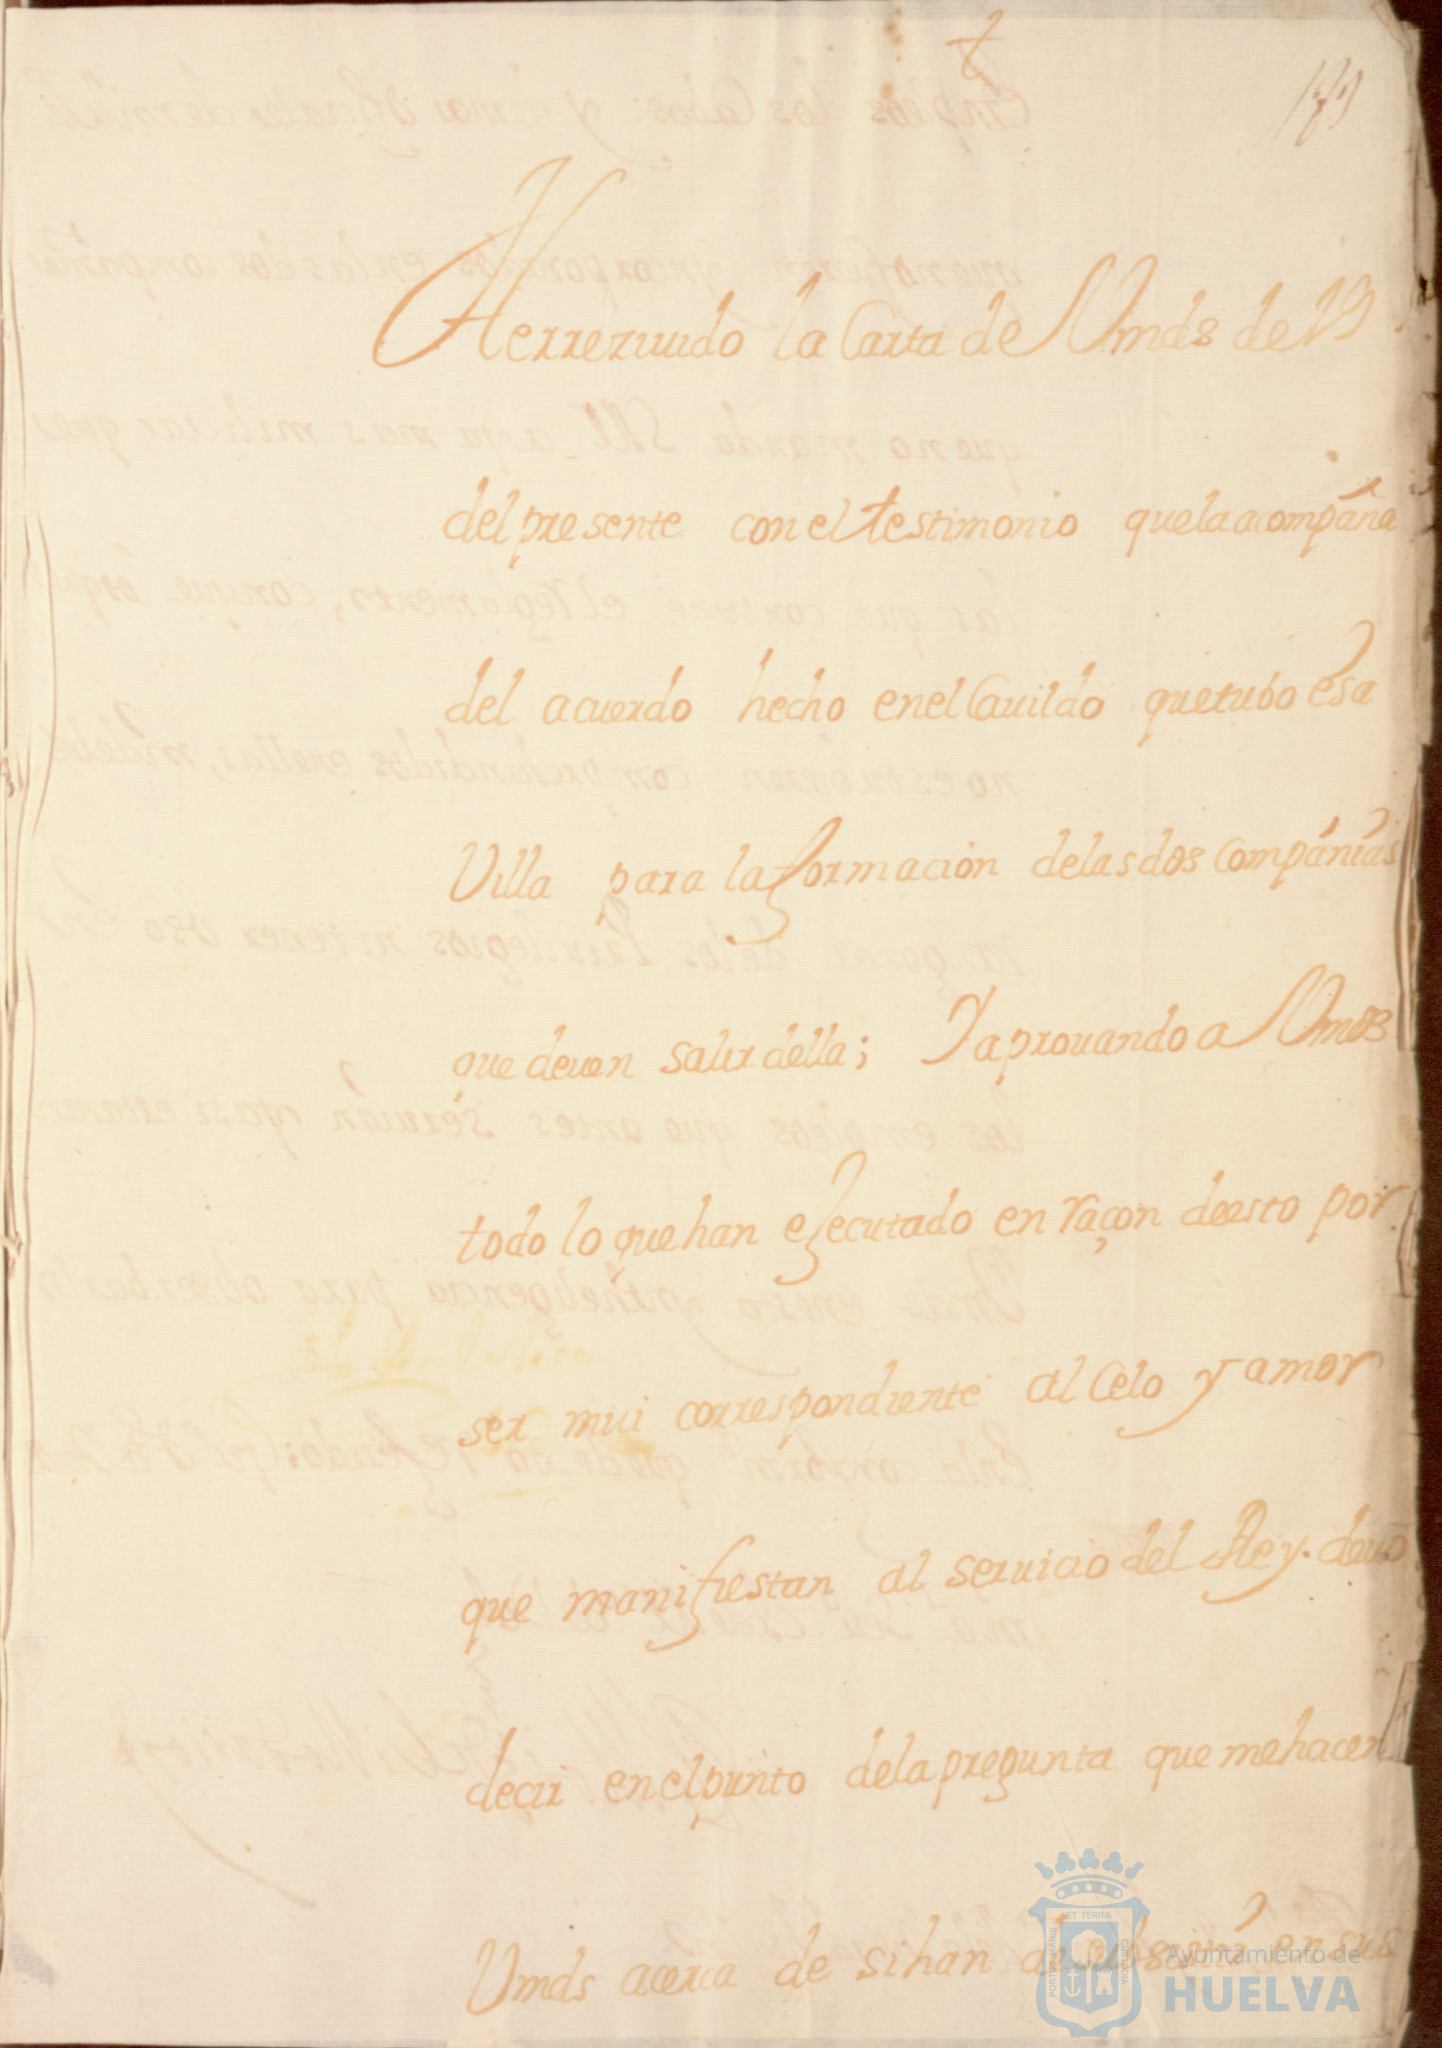 He rreziuido la Carta de Vmds de 19
del presente con el testimonio que la acompaña
del acuerdo hecho en el Cauildo que tubo esa
Villa para la formacion de las dos Compañias
que deuen salir della; Y aprouando a Vmds
todo lo que han ejecutado en raçon deesto por
ser mui correspondiente al Celo y amor
que manifiestan al seruicio del Rey. deuo
decir en el punto de la pregunta que me hacen
Vmds acerca de si han de subsistir en sus
Ayuntamiento de
HUELVA
PORTUS MARIS
ET TERRÆ
CUSTODIA